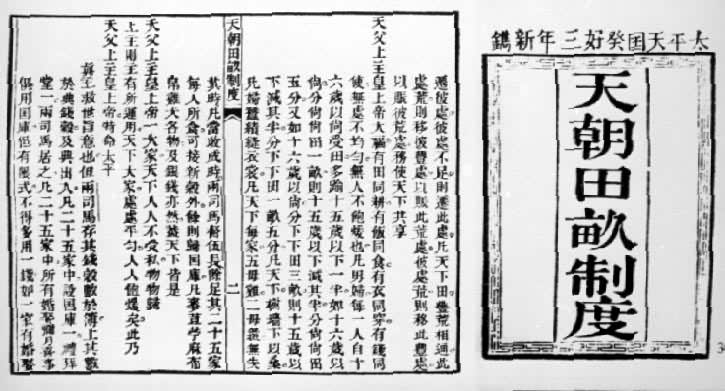 太平天囯癸好三年新鐫
天朝田畝制度
遷彼處彼處不足則遷此處凡天下田豐荒相通此
處荒則移彼豐處以賑此荒處彼處荒則移此豐處
以賑彼荒處務使天下共享
天父上主皇上帝大福有田同耕有飯同食有衣同穿有錢同
使無處不均勻無人不飽煖也凡男婦每一人自十
六歲以尚受田多踰十五歲以下一半如十六歲以
尚分尚尚田一畝則十五歲以下減其半分尚尚田
五分又如十六歲以尚分下下田三畝則十五歲以
下減其半分下下田一畝五分凡天下樹墻下以桑
凡婦蠶績縫衣裳凡天下每家五母雞二母彘無失
天朝田畝制度
二
其時凡當收成時兩司馬督伍長除足其二十五家
每人所食可接新穀外餘則歸國庫凡麥荳苧麻布
帛雞犬各物及銀錢亦然蓋天下皆是
天父上主皇上帝一大家天下人人不受私物物歸
上主則主有所運用天下大家處處平勻人人飽煖矣此乃
天父上主皇上帝特命太平
真主救世旨意也但兩司馬存其錢穀數於簿上其數
於典錢穀及典出入凡二十五家中設國庫一禮拜
堂一兩司馬居之凡二十五家中所有婚娶彌月喜事
俱用國庫但有限式不得多用一錢如一家有婚娶